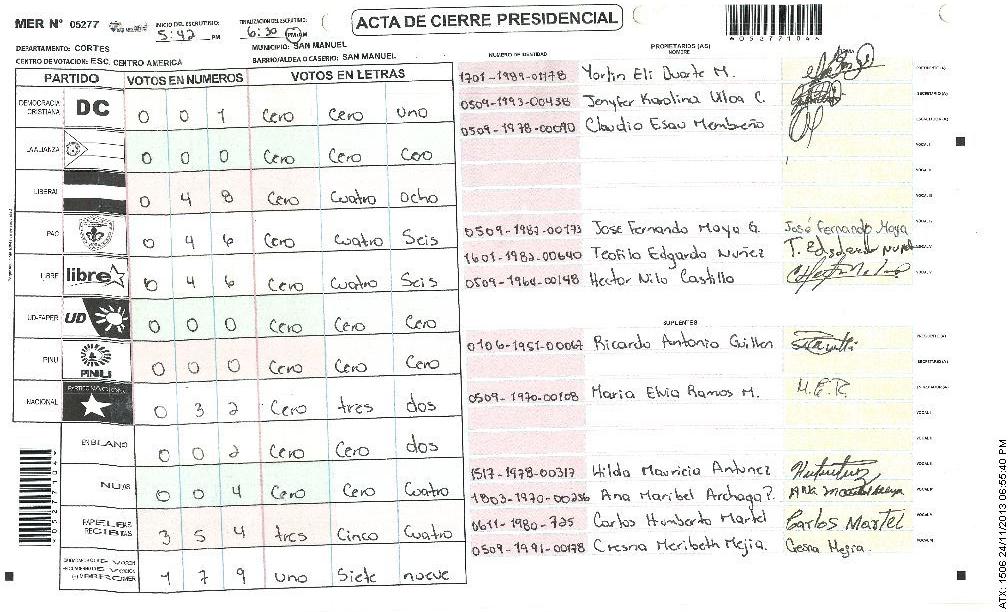 MER N° 05277
INICIO DEL ESCRUTINIO: 5:42 PM
FINALIZACION DEL ESCRUTINIO: 6:30 PM
ACTA DE CIERRE PRESIDENCIAL
DEPARTAMENTO: CORTES
MUNICIPIO: SAN MANUEL
CENTRO DE VOTACION: ESC. CENTRO AMERICA
BARRIO/ALDEA O CASERIO: SAN MANUEL
PARTIDO VOTOS EN NUMEROS VOTOS EN LETRAS
DEMOCRACIA CRISTIANA DC 0 0 1 Cero Cero uno
LA ALIANZA 0 0 0 Cero Cero Cero
LIBERAL 0 4 8 Cero Cuatro ocho
PAC 0 4 6 Cero Cuatro Seis
LIBRE libre 0 4 6 Cero Cuatro Seis
UD-FAPER UD 0 0 0 Cero Cero Cero
PINU PINU 0 0 0 Cero Cero Cero
NACIONAL 0 3 2 Cero tres dos
EN BLANCO 0 0 2 Cero Cero dos
NULOS 0 0 4 Cero Cero Cuatro
3 5 4 tres Cinco Cuatro
1 7 9 uno Siete nueve
NUMERO DE IDENTIDAD
PROPIETARIOS (AS)
NOMBRE
1701-1989-01178 Yorlin Eli Duarte M.
0509-1993-00438 Jenyfer Karolina Ulloa C.
0509-1978-00090 Claudio Esau Membreño
0509-1987-00173 Jose Fernando Moya G. José Fernando Moya
1601-1982-00640 Teofilo Edgardo Nuñez
0509-1964-00148 Hector Nilo Castillo
SUPLENTES
0106-1951-00067 Ricardo Antonio Guillen
0509-1970-00108 Maria Elvia Ramos M. M.E.R.
1517-1978-00317 Hilda Mauricia Antunez
1803-1970-00236 Ana Maribel Archaga P.
0611-1980-725 Carlos Humberto Martel Carlos Martel
0509-1991-00178 Cresna Meribeth Mejia. Gesna Mejia.
ATX: 1506 24/11/2013 06:55:40 PM